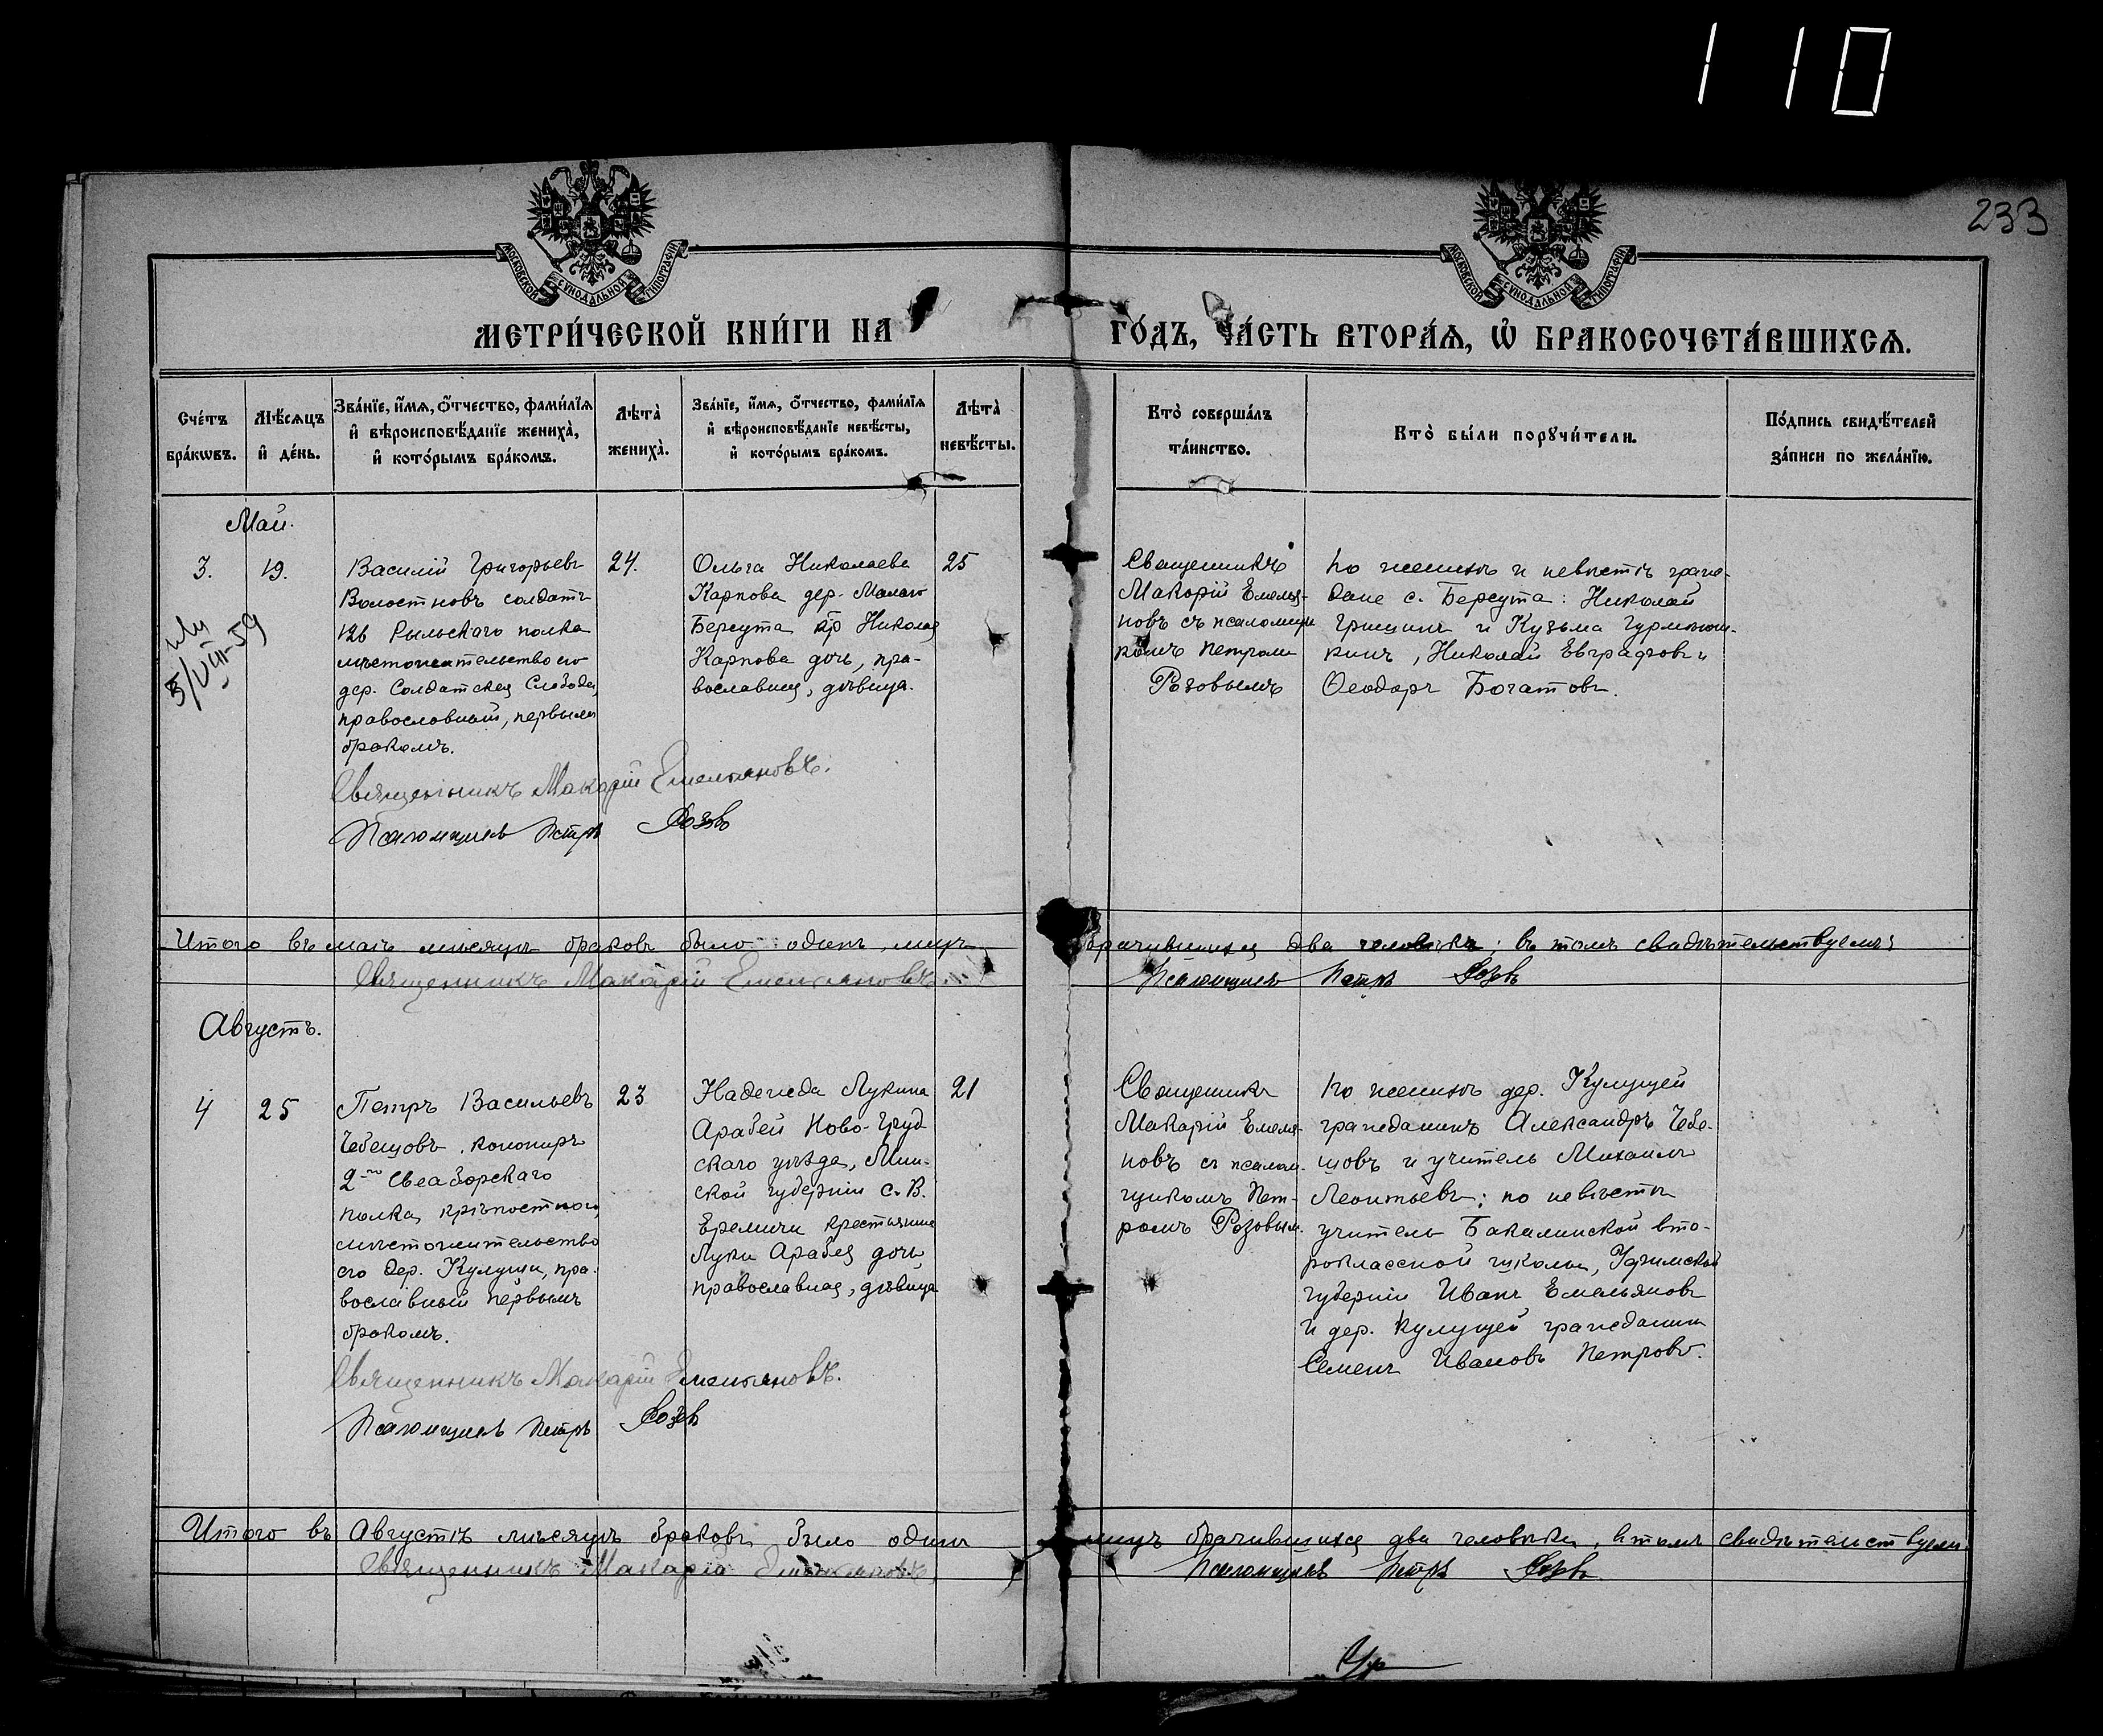 110
233
МОСКОВСКОЙ СѴНОДАЛЬНОЙ ТИПОГРАФІИ
МОСКОВСКОЙ СѴНОДАЛЬНОЙ ТИПОГРАФІИ
МЕТРИ́ЧЕСКОЙ КНИ́ГИ НА
ГО́ДЪ, ЧА́СТЬ ВТОРА́Ѧ, Ѡ҆ БРАКОСОЧЕТА́ВШИХСѦ.
Сче́тъ бра́кѡвъ.
Мѣ́сѧцъ и҆ де́нь.
Зва́нїе, и҆́мѧ, ѻ҆́тчество, фами́лїѧ и҆ вѣроисповѣ́данїе жениха̀, и҆ кото́рымъ бра́комъ.
Лѣта̀ жениха̀.
Зва́нїе, и҆́мѧ, ѻ҆́тчество, фами́лїѧ и҆ вѣроисповѣ́данїе невѣ́сты, и҆ кото́рымъ бра́комъ.
Лѣта̀ невѣ́сты.
Кто̀ соверша́лъ та́инство.
Кто̀ бы́ли порꙋчи́тели.
По́дпись свидѣ́телей за́писи по жела́нїю.
Май.
3.
19.
5/VIII-59
Василій Григорьевъ
Волостновъ солдатъ
126 Рыльскаго полка
мѣстожительство его
дер. Солдатская Слобода,
православный, первымъ
бракомъ.
24.
Ольга Николаева
Карпова дер. Малаго
Берсута кр Николая
Карпова дочь, пра-
вославная, дѣвица.
25
Священникъ
Макарій Емелья-
новъ съ псаломщи
комъ Петромъ
Розовымъ
по женихѣ и невѣстѣ граж-
дане с. Берсута: Николай
Гришинъ и Кузьма
кинъ, Николай Евграфовъ и
Ѳеодоръ Богатовъ.
Священникъ Макарій Емельяновъ.
Псаломщикъ Петръ Розовъ
Итого въ маѣ мѣсяцѣ браковъ было одинъ, лицъ брачившихся два человѣка; въ томъ свидѣтельствуемъ:
Священникъ Макарій Емельяновъ. Псаломщикъ Петръ Розовъ
Августъ.
4
25
Петръ Васильевъ
Чебещовъ, канониръ
2го Свеаборскаго
полка крѣпостного,
мѣстожительство
его дер. Кулущи, пра-
вославный первымъ
бракомъ.
23
Надежда Лукина
Арабей Ново-Груд
скаго уѣзда, Мин-
ской губерніи с. В.
Еремичи крестьянина
Луки Арабея дочь
православная, дѣвица
21
Священникъ
Макарій Емелья-
новъ съ псалом-
щикомъ Пет-
ромъ Розовым.
по женихѣ дер. Кулущей
гражданинъ Александръ Чебе-
щовъ и учитель Михаилъ
Леонтьевъ; по невѣстѣ
учитель Бакалинской вто-
роклассной школы, Уфимской
губерніи Иванъ Емельяновъ
и дер. Кулущей гражданинъ
Семенъ Ивановъ Петровъ.
Священникъ Макарій Емельяновъ.
Псаломщикъ Петръ Розовъ
Итого въ Августѣ мѣсяцѣ браковъ было одинъ лицъ брачившихся два человѣка, въ томъ свидѣтельствуемъ
Священникъ Макарій Емельяновъ Псаломщикъ Петръ Розовъ